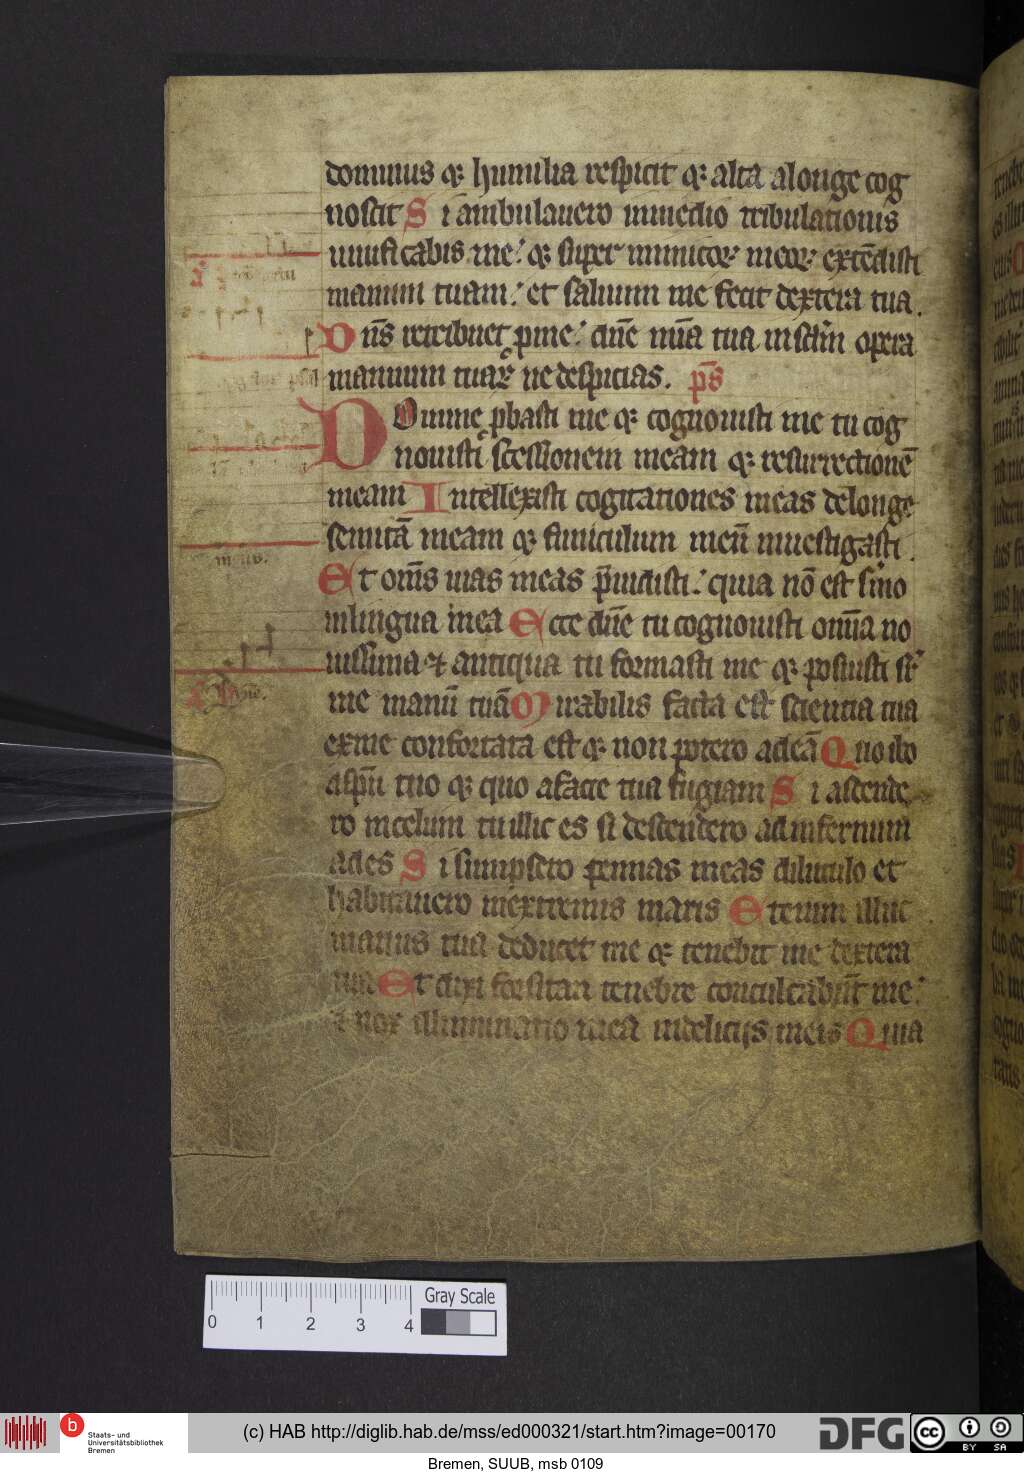 dominus q humilia respicit q alta alonge cog
noscit Si ambulauero inmedio tribulationis
uiuificabis me q super inimicor meor extēdisti
manum tuam et saluum me fecit dextera tua.
Dn̄s retribuet pme dn̄e mīa tua inscl̄m opera
manuum tuar ne despicias. ps̄
DOmine pbasti me q cognouisti me tu cog
nouisti scessionem meam q resurrectionē
meam Intellexisti cogitationes meas delonge
semitā meam q funiculum meū inuestigasti.
Et om̄s uias meas p̄uidisti quia nō est s̄mo
inlingua mea Ecce dn̄e tu cognouisti om̄ia no
uissima & antiqua tu formasti me q posuisti sr
me manū tuā Mirabilis facta est scientia tua
exme confortata est q non potero adeā Quo ibo
aspū tuo q quo afacie tua fugiam Si ascende
ro incelum tu illic es si descendero adinfernum
ades Si sumpsero pennas meas diluculo et
habitauero inextremis maris Etenim illuc
manus tua deducet me q tenebit me dextera
tua Et dixi forsitan tenebre conculcabūt me
& nox illuminatio mea indeliciis meis Quia
0 1 2 3 4
Gray Scale
b Staats- und
Universitätsbibliothek
Bremen
(c) HAB http://diglib.hab.de/mss/ed000321/start.htm?image=00170
DFG
cc BY SA
Bremen, SUUB, msb 0109